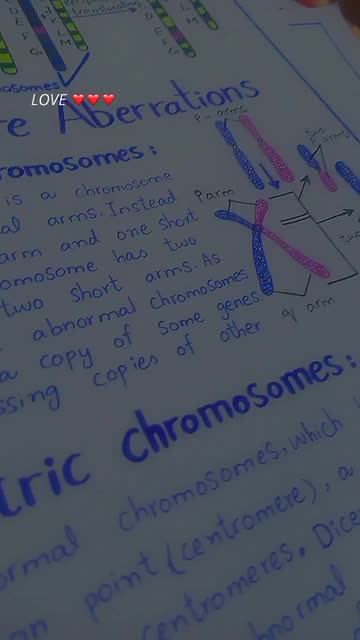 D
E
F
G
L
M
D
E
F
G
L
M
translocation
LOVE ❤❤❤
e Aberrations
romosomes:
is a chromosome
al arms. Instead
arm and one short
omosome has two
two short arms. As
abnormal chromosomes
a copy of some genes
ssing copies of other
P-arms
P arms
P arm
q arm
tric chromosomes:
ormal chromosomes, which
point (centromere), a
centromeres. Dice